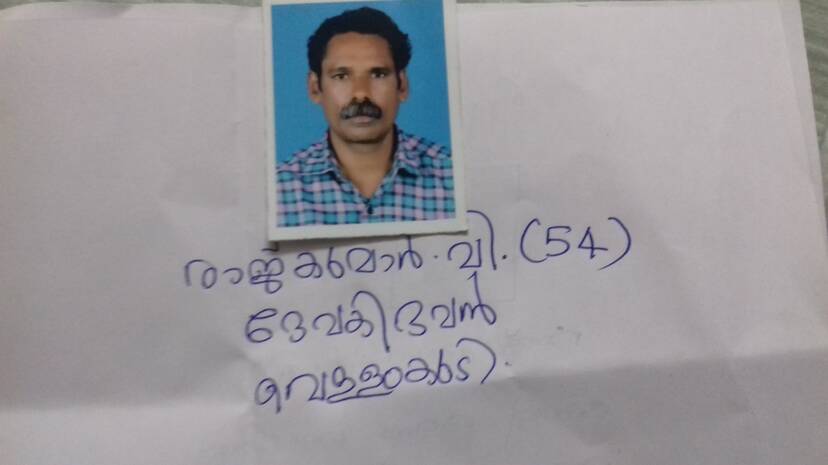 രാജ്കുമാർ. വി. (54)
ദേവകിഭവൻ
വെള്ളംകുടി.